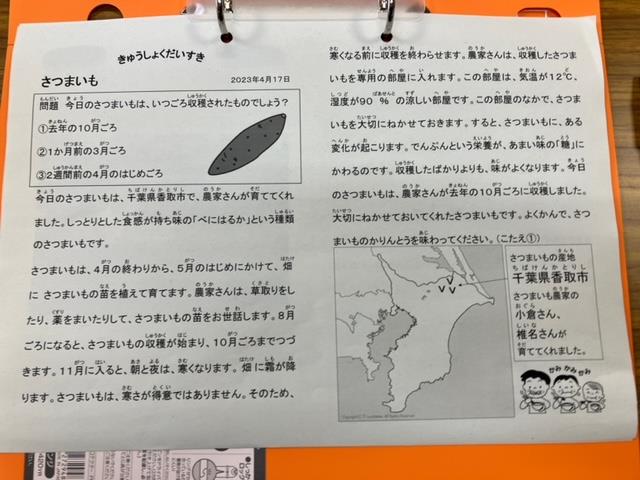 きゅうしょくだいすき
さつまいも 2023年4月17日
問題 今日のさつまいもは、いつごろ収穫されたものでしょう？
①去年の10月ごろ
②1か月前の3月ごろ
③2週間前の4月のはじめごろ
今日のさつまいもは、千葉県香取市で、農家さんが育ててくれ
ました。しっとりとした食感が持ち味の「べにはるか」という種類
のさつまいもです。
さつまいもは、4月の終わりから、5月のはじめにかけて、畑
に さつまいもの苗を植えて育てます。農家さんは、草取りをし
たり、薬をまいたりして、さつまいもの苗をお世話します。8月
ごろになると、さつまいもの収穫が始まり、10月ごろまでつづ
きます。11月に入ると、朝と夜は、寒くなります。畑に霜が降
ります。さつまいもは、寒さが得意ではありません。そのため、
寒くなる前に収穫を終わらせます。農家さんは、収穫したさつま
いもを専用の部屋に入れます。この部屋は、気温が12℃、
湿度が90％の涼しい部屋です。この部屋のなかで、さつま
いもを大切にねかせておきます。すると、さつまいもに、ある
変化が起こります。でんぷんという栄養が、あまい味の「糖」に
かわるのです。収穫したばかりよりも、味がよくなります。今日
のさつまいもは、農家さんが去年の10月ごろに収穫しました。
大切にねかせておいてくれたさつまいもです。よくかんで、さつ
まいものかりんとうを味わってください。（こたえ①）
さつまいもの産地
千葉県香取市
さつまいも農家の
小倉さん、
椎名さんが
育ててくれました。
かみかみかみ